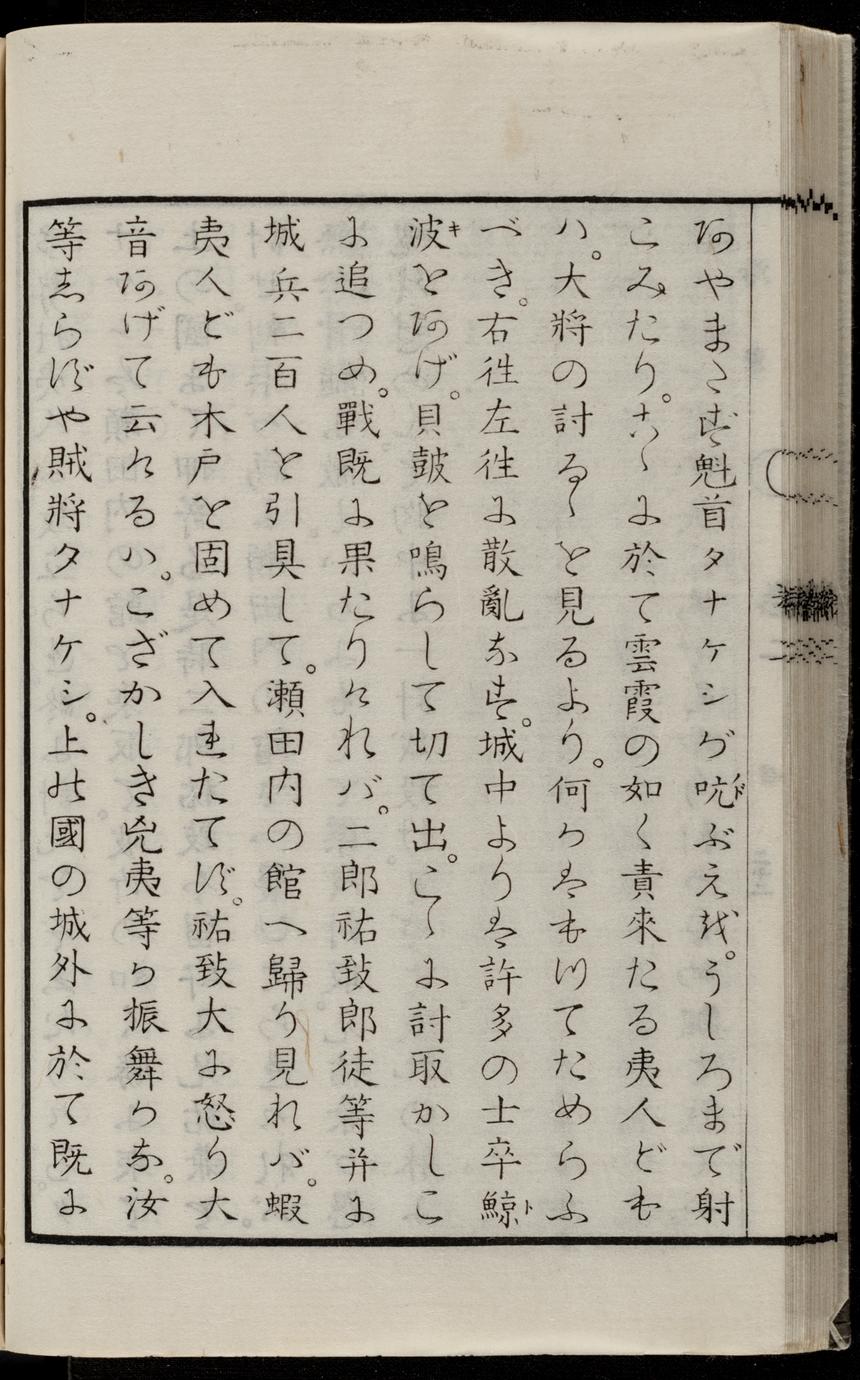 あやまたず魁首タナケシガ吭ぶえを。うしろまで射
こみたり。こゝに於て雲霞の如く責來たる夷人ども
ハ。大將の討るゝを見るより。何かはもつてためらふ
べき。右徃左徃に散亂なす。城中よりは許多の士卒鯨
波をあげ。貝皷を鳴らして切て出。こゝに討取かしこ
に追つめ。戰既に果たりけれバ。二郎祐致郎徒等并に
城兵二百人を引具して。瀬田内の館へ歸り見れバ。蝦
夷人ども木戸を固めて入れたてず。祐致大に怒り大
音あげて云けるハ。こざかしき兇夷等の振舞かな。汝
等しらずや賊將タナケシ。上の國の城外に於て既に